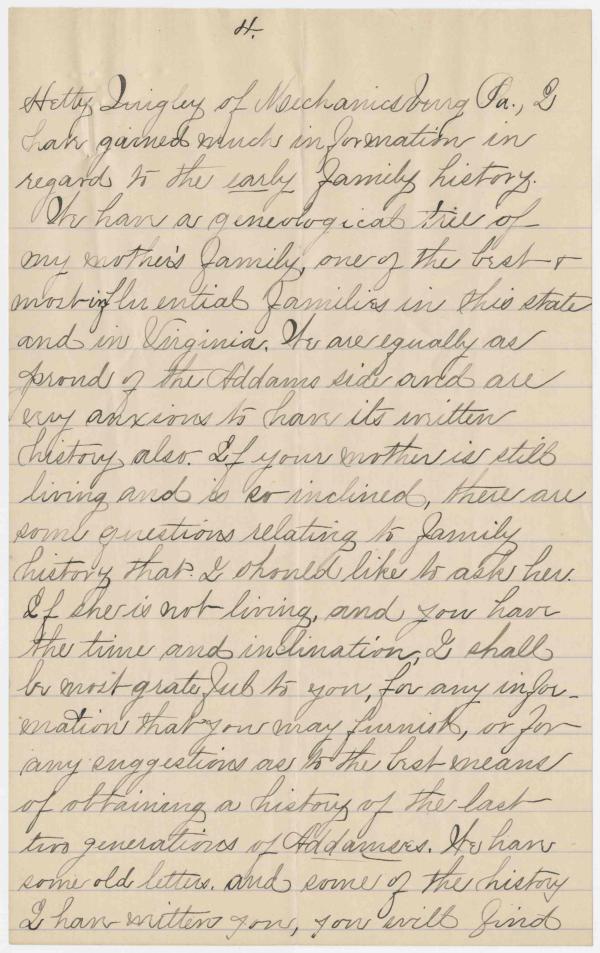 4.
Hetty Quigley of Mechanicsburg Pa., I
have gained much information in
regard to the early Family history.
We have a geneological tree of
my mother's Family, one of the best &
most influential Families in this state
and in Virginia. We are equally as
proud of the Addams side and are
very anxious to have its written
history also. If your mother is still
living and is so inclined, there are
some questions relating to Family
history that I should like to ask her.
If she is not living, and you have
the time and inclination, I shall
be most grateful to you, for any infor-
mation that you may furnish, or for
any suggestions as to the best means
of obtaining a history of the last
two generations of Addamses. We have
some old letters. and some of the history
I have written you, you will find